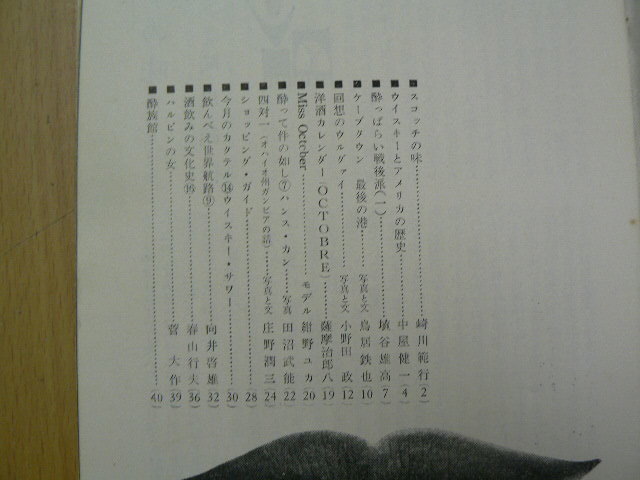 ■スコッチの味……崎川範行(2)
■ウイスキーとアメリカの歴史……中屋健一(4)
■酔っぱらい戦後派(一)……埴谷雄高(7)
■ケープタウン 最後の港……写真と文 鳥居鉄也(10)
■回想のウルグァイ……写真と文 小野田 政(12)
■洋酒カレンダー(OCTOBRE)……薩摩治郎八(19)
■Miss October……モデル 紺野ユカ(20)
■酔って件の如し⑦ハンス・カン……写真 田沼武能(22)
■四対一(オハイオ州ガンビアの話)……写真と文 庄野潤三(24)
■ショッピング・ガイド……(28)
■今月のカクテル⑭ウイスキー・サワー……(30)
■飲んべえ世界航路⑨……向井啓雄(32)
■酒飲みの文化史⑯……春山行夫(36)
■ハルピンの女……菅 大作(39)
■酔族館……(40)